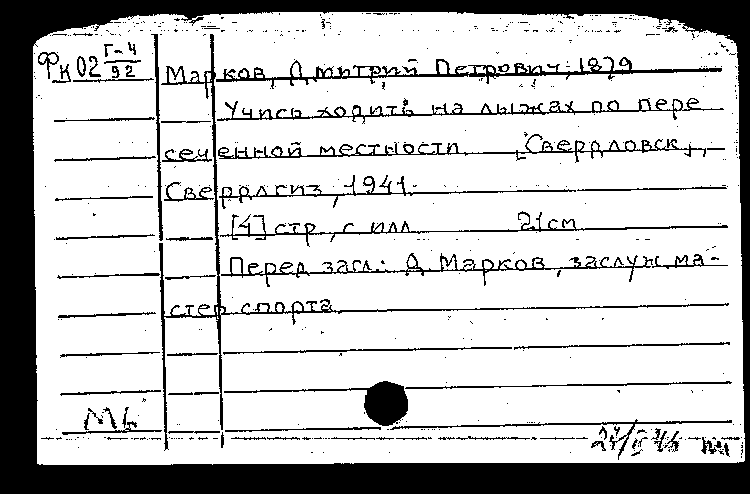 Фк 02 Г-4/92
Марков, Дмитрий Петрович, 1879
Учись ходить на лыжах по пере
сеченной местности. [Свердловск],
Свердлгиз, 1941.
[4] стр., с илл. 21 см
Перед загл.: Д. Марков, заслуж. ма-
стер спорта.